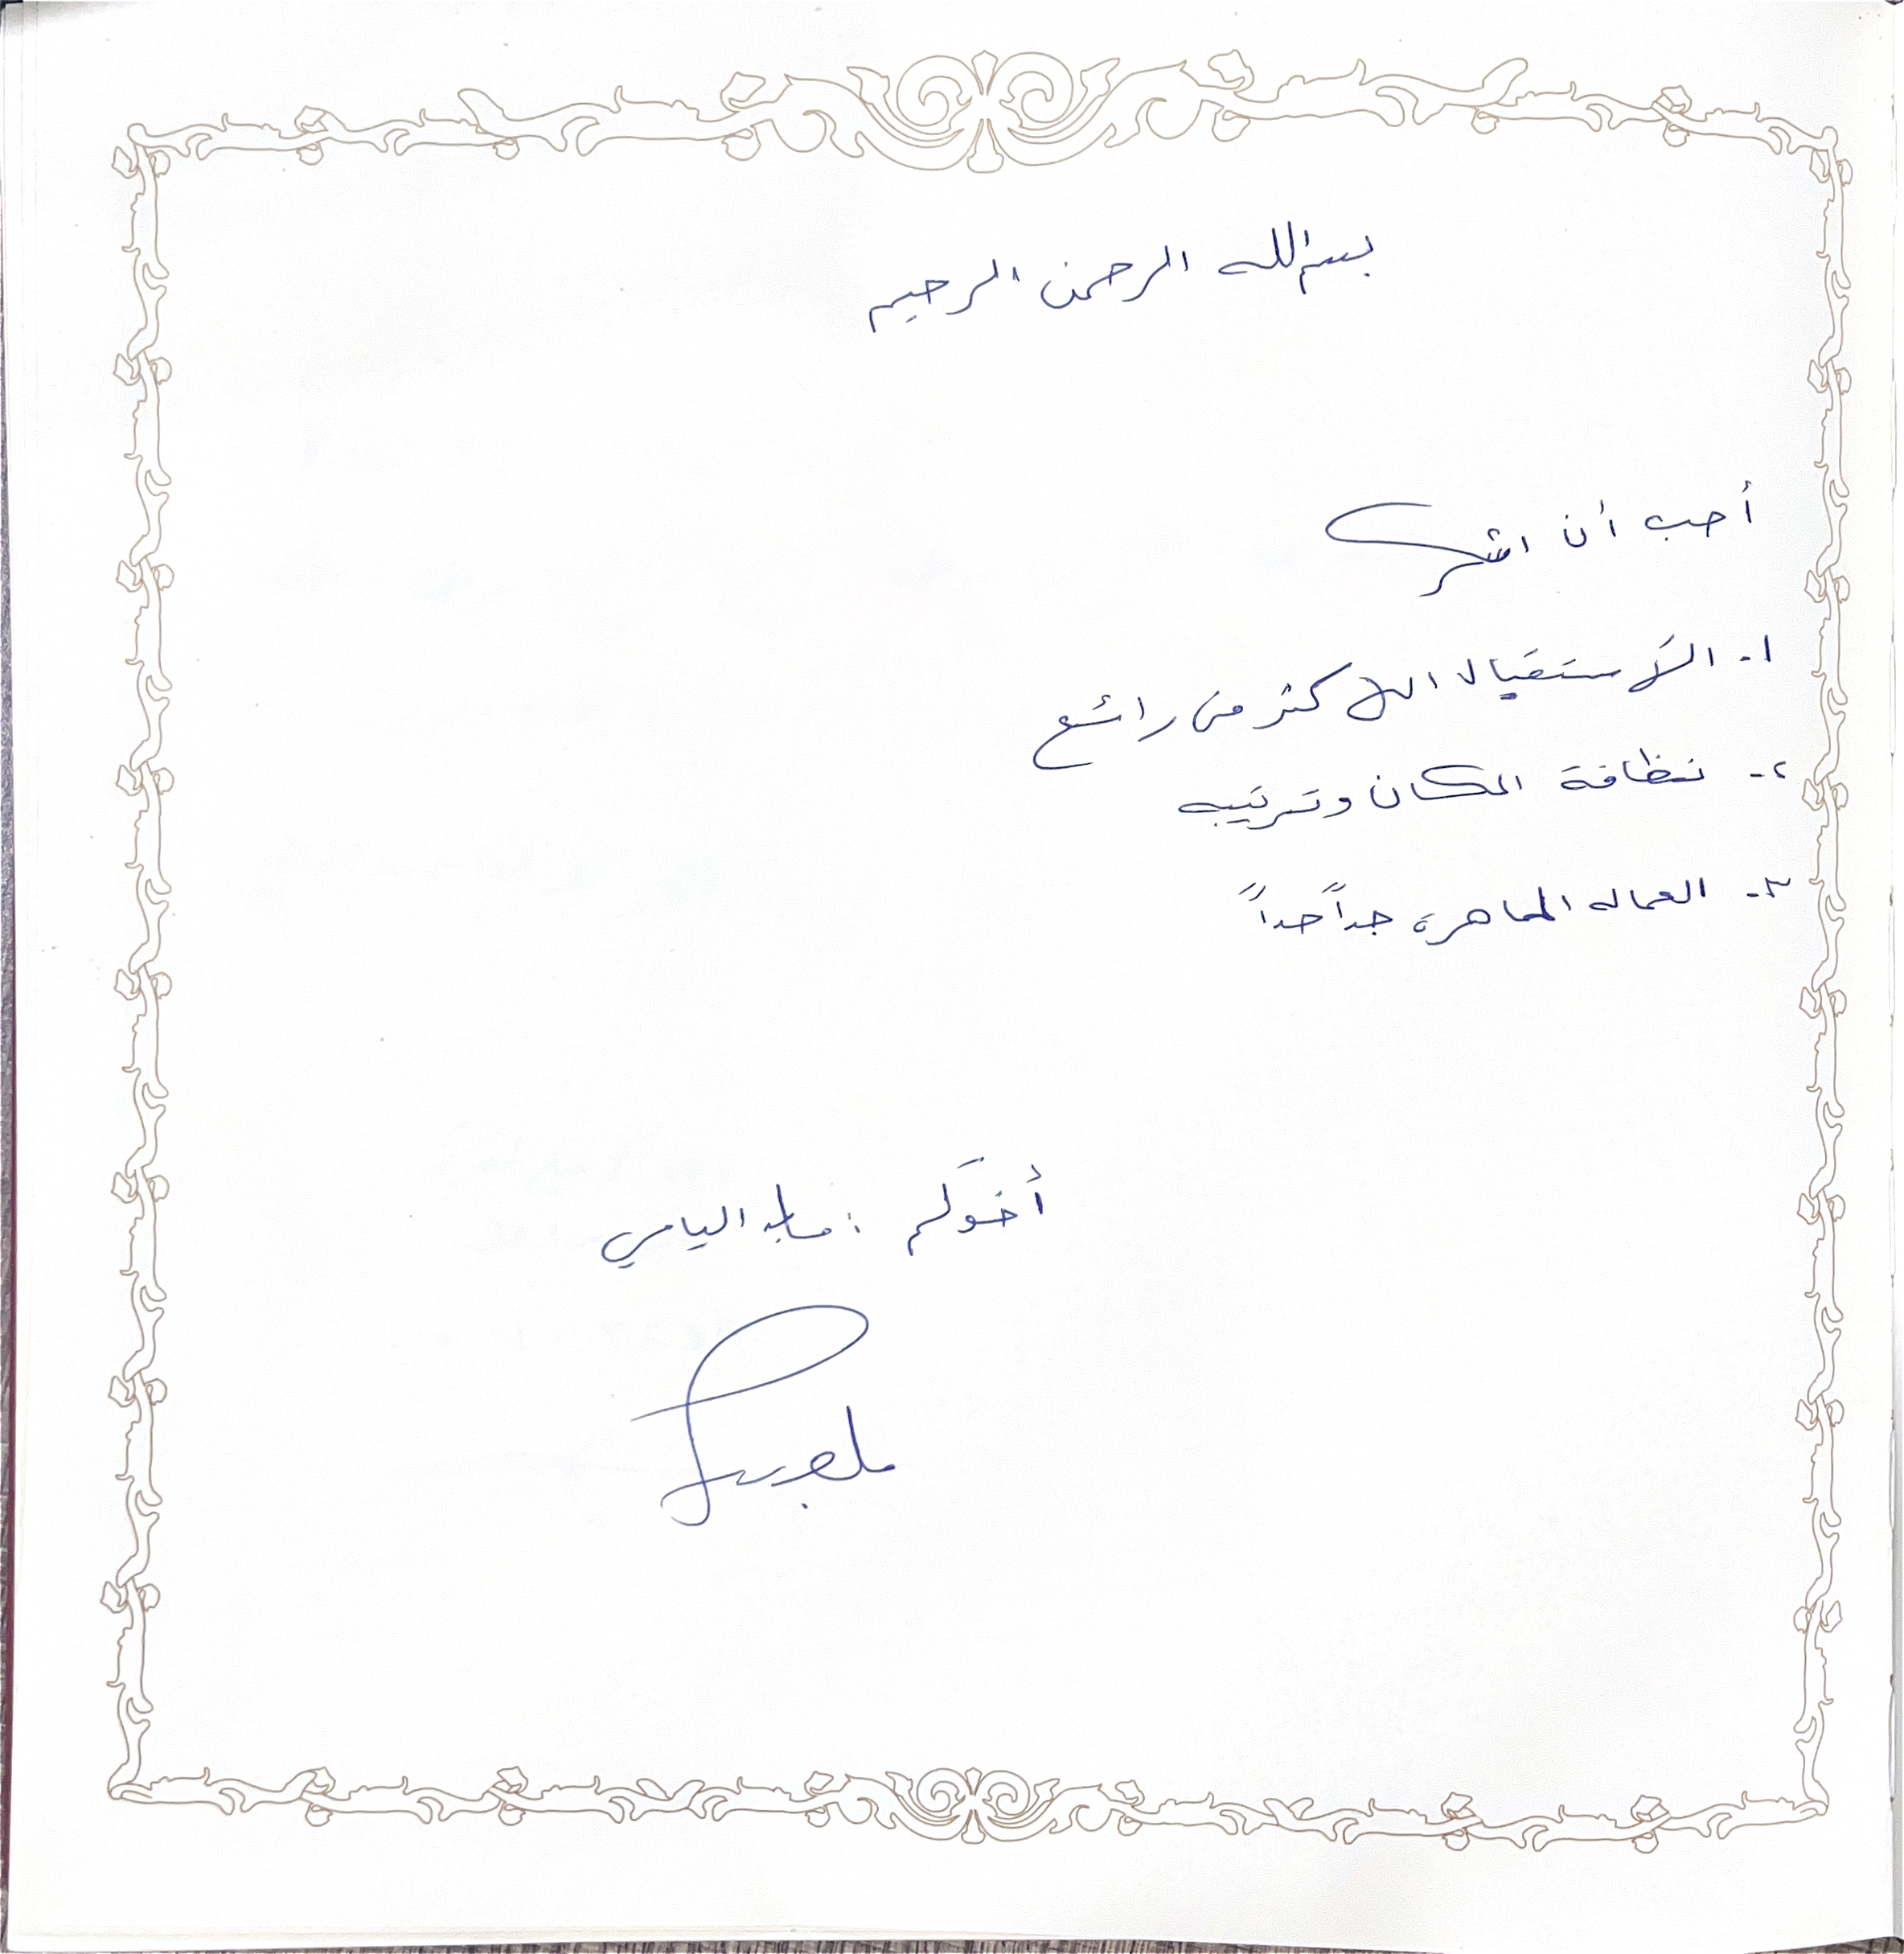 بسم الله الرحمن الرحيم
أحب أن اشكر
١- الاستقبال الاكثر من رائع
٢- نظافة المكان وترتيبه
٣- العماله الماهرة جداً جداً
أخوكم : اليامي